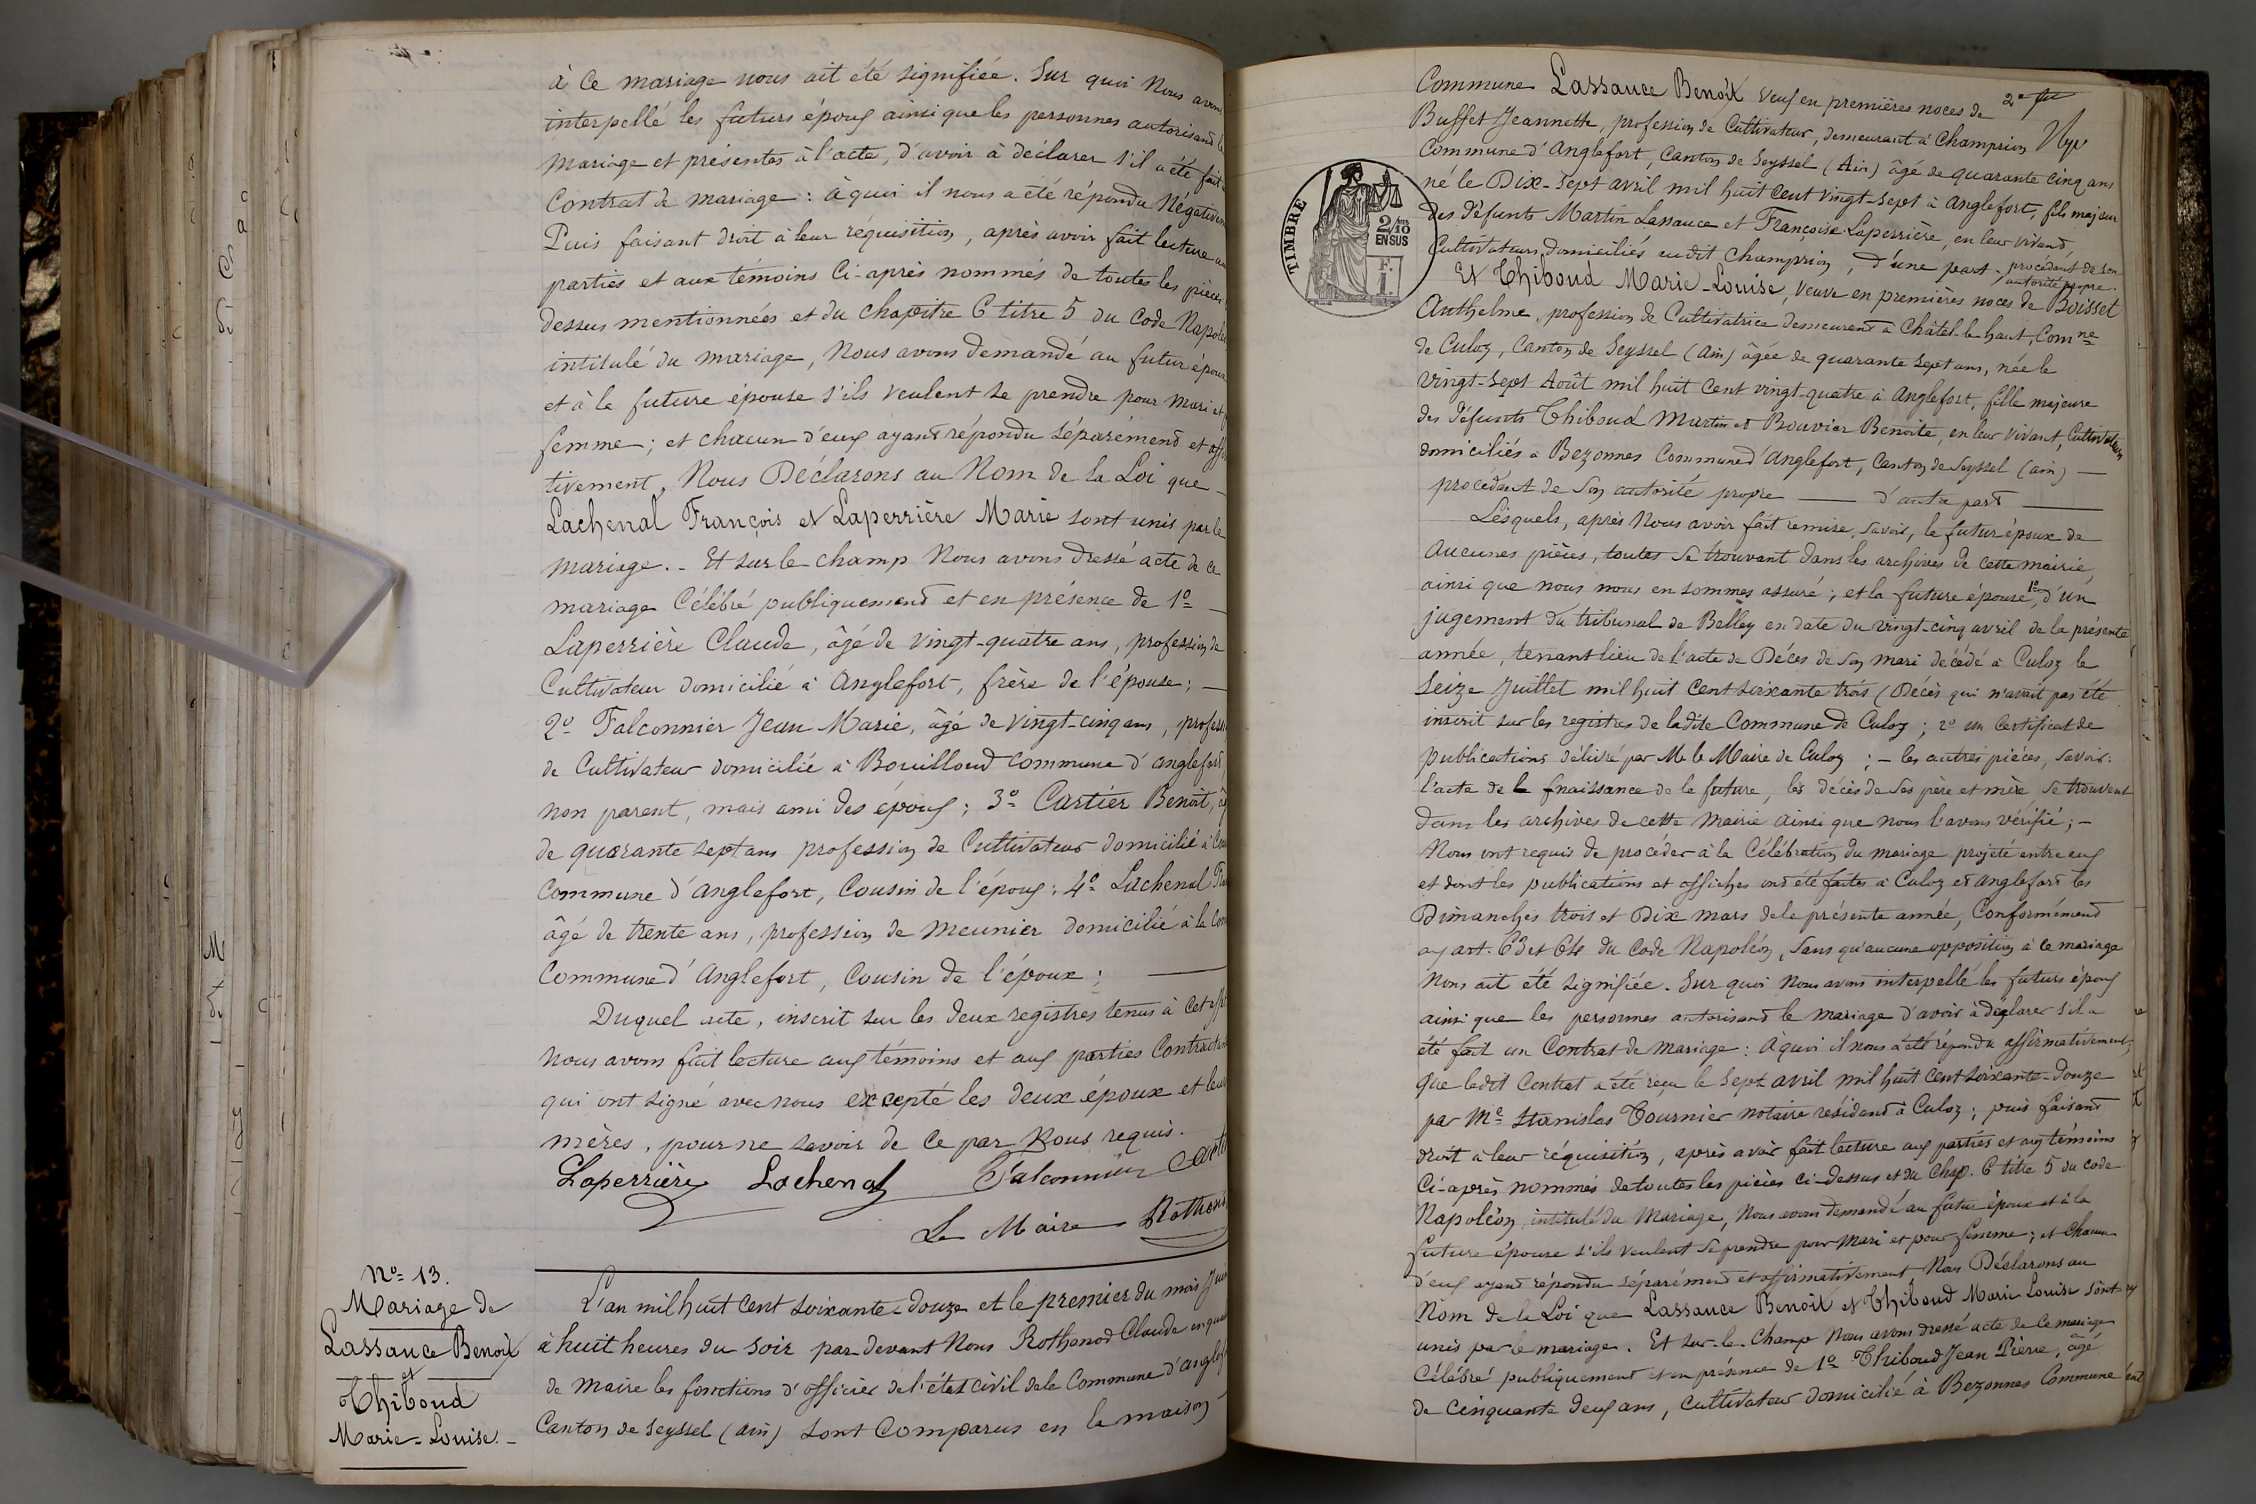 à ce mariage nous ait été signifiée. Sur quoi Nous avons
interpellé les futurs époux ainsi que les personnes autorisant le
mariage et présentes à l'acte, d'avoir à déclarer s'il a été fait
Contrat de mariage : à quoi il nous a été répondu Négativem
Puis faisant droit à leur réquisition, après avoir fait lecture au
parties et aux témoins Ci-après nommés de toutes les pièces
dessus mentionnées et du chapitre 6 titre 5 du Code Napolé
intitulé du mariage, Nous avons demandé au futur époux
et à la future épouse s'ils veulent se prendre pour mari et p
femme ; et chacun d'eux ayant répondu séparément et affir
tivement, Nous Déclarons au Nom de la Loi que
Lachenal François et Laperrière Marie sont unis par le
mariage. - Et sur le champ Nous avons dressé acte de ce
mariage Célébré publiquement et en présence de 1º
Laperrière Claude, âgé de vingt-quatre ans, profession de
Cultivateur domicilié à Anglefort, frère de l'épouse ;
2º Falconnier Jean Marie, âgé de vingt-cinq ans, profess
de Cultivateur domicilié à Bouilloud Commune d'anglefort,
non parent, mais ami des époux ; 3º Cartier Benoît, âg
de quarante sept ans profession de Cultivateur domicilié à
Commune d'anglefort, Cousin de l'époux ; 4º Lachenal
âgé de trente ans, profession de meunier domicilié à la
Commune d'Anglefort, Cousin de l'époux ;
Duquel acte, inscrit sur les deux registres tenus à cet eff
Nous avons fait lecture aux témoins et aux parties Contractan
qui ont signé avec nous excepté les deux époux et leur
mères, pour ne savoir de ce par Nous requis.
Laperrière Lachenal Falconnier Carti
Le Maire Rothonod
Nº 13.
Mariage de
Lassauce Benoît
et
Thiboud
Marie-Louise.
L'an mil huit Cent soixante-douze et le premier du mois Juin
à huit heures du soir par devant Nous Rothonod Claude en qual
de maire les fonctions d'officier de l'état civil de la Commune d'anglef
Canton de Seyssel (ain) sont Comparus en la maison
2e
Commune Lassauce Benoît Veuf en premières noces de
Buffet Jeannette, profession de Cultivateur, demeurant à Champrion
Commune d'Anglefort, Canton de Seyssel (Ain) âgé de quarante cinq ans
né le Dix-sept avril mil huit Cent vingt-sept à anglefort, fils majeur
des défunts Martin Lassauce et Françoise Laperrière, en leur vivant,
Cultivateurs domiciliés audit Champrion, d'une part. procédant de son
autorité propre.
Et Thiboud Marie-Louise, Veuve en premières noces de Boisset
Anthelme, profession de Cultivatrice demeurant à Châtel-le-haut, Comne
de Culoz, Canton de Seyssel (Ain) âgée de quarante sept ans, née le
Vingt-sept Août mil huit Cent vingt-quatre à Anglefort, fille majeure
des défunts Thiboud Martin et Bouvier Benoite, en leur vivant, Cultivateurs
domiciliés à Bezonnes Commune d'Anglefort, Canton de Seyssel (ain)
procédant de son autorité propre d'autre part
Lesquels, après Nous avoir fait remise, savoir, le futur époux de
aucunes pièces, toutes se trouvant dans les archives de cette mairie,
ainsi que nous nous en sommes assuré ; et la future épouse, 1º d'un
jugement du tribunal de Belley en date du vingt-cinq avril de la présente
année, tenant lieu de l'acte de Décès de son mari décédé à Culoz le
Seize Juillet mil huit Cent soixante trois (Décès qui n'avait pas été
inscrit sur les registres de ladite Commune de Culoz ; 2º un Certificat de
publications délivré par Mr le Maire de Culoz ; - les autres pièces, savoir :
l'acte de naissance de la future, les décès de ses père et mère se trouvent
dans les archives de cette Mairie ainsi que nous l'avons vérifié ; -
Nous ont requis de procéder à la Célébration du mariage projeté entre eux
et dont les publications et affiches ont été faites à Culoz et anglefort les
Dimanches trois et Dix mars de la présente année, Conformément
aux art. 63 et 64 du Code Napoléon, sans qu'aucune opposition à ce mariage
Nous ait été signifiée. Sur quoi Nous avons interpellé les futurs époux
ainsi que les personnes autorisant le mariage d'avoir à déclarer s'il a
été fait un Contrat de mariage : à quoi il nous a été répondu affirmativement ;
que ledit Contrat a été reçu le sept avril mil huit Cent soixante-douze
par Me Stanislas Tournier notaire résidant à Culoz ; puis faisant
droit à leur réquisition, après avoir fait lecture aux parties et aux témoins
Ci-après nommés de toutes les pièces Ci-dessus et du Chap. 6 titre 5 du code
Napoléon, intitulé du Mariage, Nous avons demandé au futur époux et à la
future épouse s'ils veulent se prendre pour Mari et pour femme ; et chacun
d'eux ayant répondu séparément et affirmativement Nous Déclarons au
Nom de la Loi que Lassauce Benoît et Thiboud Marie Louise sont
unis par le mariage. Et sur-le-Champ Nous avons dressé acte de ce mariage
Célébré publiquement et en présence de 1º Thiboud Jean Pierre, âgé
de Cinquante deux ans, Cultivateur domicilié à Bezonnes Commune
TIMBRE
2/10
EN SUS
F.
1.